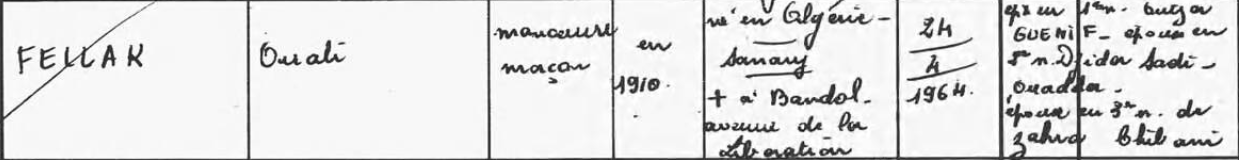 FELLAK
Ouali
manoeuvre
maçon
en
1910.
né en Algérie -
Sanary
+ à Bandol -
avenue de la
Libération
24
4
1964.
ép. en 1er n.
GUENIF - épouse en
2e n. Djida Sadi -
Ouadda -
épouse en 3e n. de
Zahra Chibani